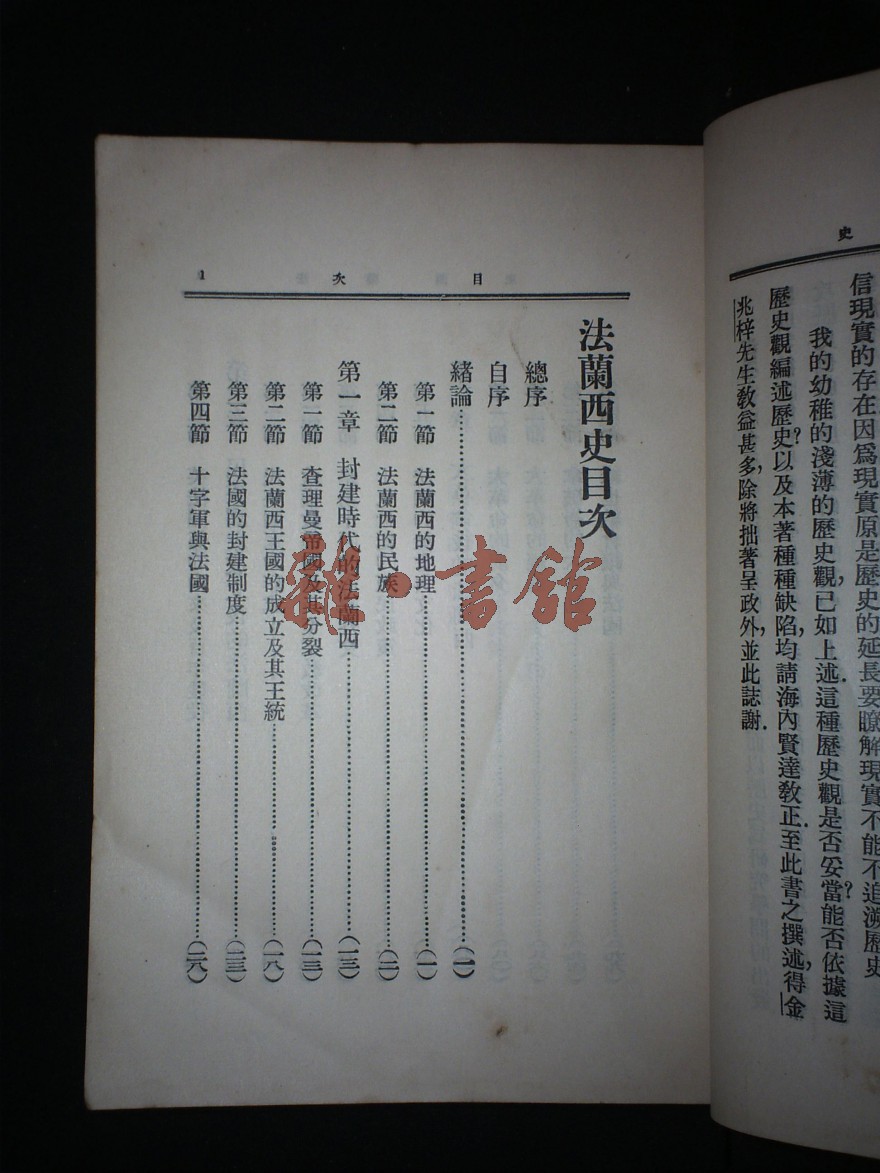 史
信現實的存在因爲現實原是歷史的延長要瞭解現實不能不追溯歷史
我的幼稚的淺薄的歷史觀,已如上述.這種歷史觀是否妥當?能否依據這
歷史觀編述歷史?以及本著種種缺陷,均請海內賢達敎正.至此書之撰述,得金
兆梓先生敎益甚多,除將拙著呈政外,並此誌謝.
目次
1
法蘭西史目次
總序
自序
緒論……(一)
第一節 法蘭西的地理……(一)
第二節 法蘭西的民族……(二)
第一章 封建時代的法蘭西……(一三)
第一節 查理曼帝國及其分裂……(一三)
第二節 法蘭西王國的成立及其王統……(一八)
第三節 法國的封建制度……(二三)
第四節 十字軍與法國……(二八)
雜·書館